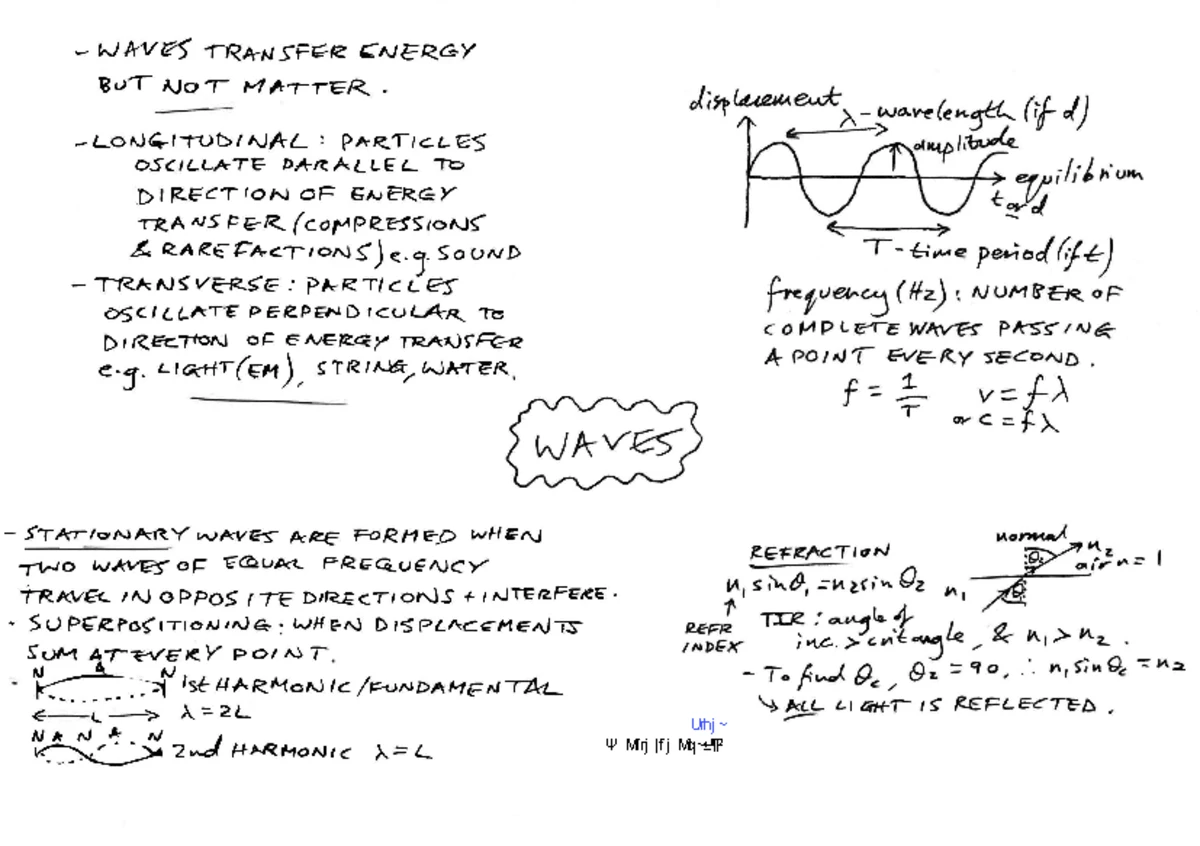 - WAVES TRANSFER ENERGY
BUT NOT MATTER.
- LONGITUDINAL: PARTICLES
OSCILLATE PARALLEL TO
DIRECTION OF ENERGY
TRANSFER (COMPRESSIONS
& RAREFACTIONS) e.g. SOUND
- TRANSVERSE: PARTICLES
OSCILLATE PERPENDICULAR TO
DIRECTION OF ENERGY TRANSFER
e.g. LIGHT (EM), STRING, WATER.
displacement
λ - wavelength (if d)
amplitude
equilibrium
t or d
T - time period (if t)
frequency (Hz): NUMBER OF
COMPLETE WAVES PASSING
A POINT EVERY SECOND.
f = 1/T v = fλ
or c = fλ
WAVES
- STATIONARY WAVES ARE FORMED WHEN
TWO WAVES OF EQUAL FREQUENCY
TRAVEL IN OPPOSITE DIRECTIONS + INTERFERE.
· SUPERPOSITIONING: WHEN DISPLACEMENTS
SUM AT EVERY POINT.
N A N
· 1st HARMONIC/FUNDAMENTAL
← L → λ = 2L
N A N A N
2nd HARMONIC λ = L
REFRACTION
n₁ sinθ₁ = n₂ sinθ₂
↑
REFR
INDEX
normal
n₂
air n = 1
n₁
TIR: angle of
inc. > crit angle, & n₁ > n₂.
- To find θc, θ₂ = 90, ∴ n₁ sinθc = n₂
↳ ALL LIGHT IS REFLECTED.